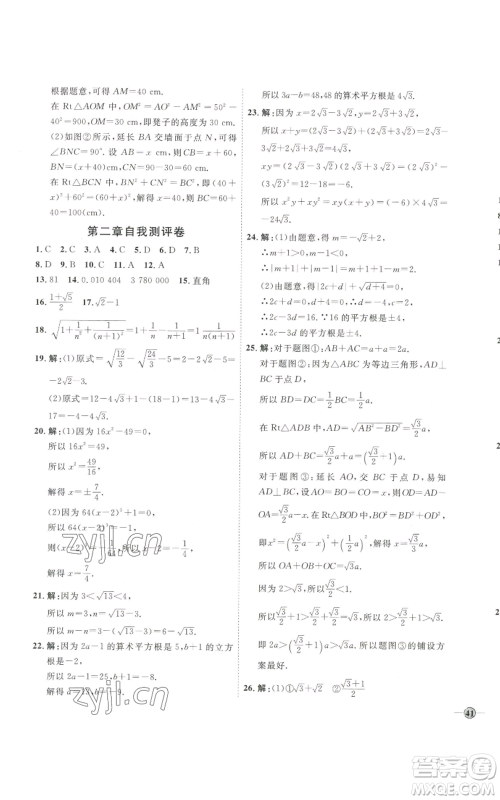 根据题意,可得 AM=40 cm.
在 Rt△AOM 中,OM²=AM²=50²-
40²=900,OM=30 cm,即凳子的高度为
30 cm.
(2)如图②所示,延长 BA 交墙面于点 N,可得
∠BNC=90°. 设 AB=x cm,则 CB=(x+60)cm,
BN=(x+60)cm,CN=90 cm,
在 Rt△BCN 中,BN²+CN²=BC²,
40²+90²=(60+x)²,
所以 AB=40(cm).
第二章自我测评卷
1. C 2. C 3. C 4. C 5. D 6. C 7. B
8. D 9. D 10. B 11. A 12. B
13. 81 14. 0.010 404 3 780 000 15. 直角
16. (1+√5)/2 17. √2-1
18. √(1+1/n²+1/(n+1)²)=1+1/(n(n+1))
19. 解:(1)原式=√(12/3)-√(24/3)-5=2-2√2-5=
-3-2√2.
(2)原式=12-4√3+1-12=1-4√3.
20. 解:(1)因为 16x²-49=0,
所以 16x²=49,
所以 x²=49/16,
解得 x=±7/4.
(2)因为 64(x-2)³+1=0,
所以 64(x-2)³=-1,
则(x-2)³=-1/64,x-2=-1/4,
解得 x=7/4.
21. 解:因为 3<√13<4,
所以 m=3,n=√13-3,
所以 m-n=6-√13.
22. 解:因为 2a-1 的算术平方根是 5,b+1 的立方
根是-2,
所以 2a-1=25,b+1=-8,
解得 a=13,b=-9.
所以 3a-b=48,48 的算术平方根是 4√3.
23. 解:因为 x=2√3-3√2,y=2√3+3√2,
所以 x+y=2√3-3√2+2√3+3√2=4√3,
xy=(2√3-3√2)(2√3+3√2)=(2√3)²-
(3√2)²=12-18=-6.
所以 x²y+xy²=xy(x+y)=(-6)×4√3=
-24√3.
24. 解:(1)由题意,可得 m=-√2+2.
∴m+1>0,m-1<0,
∴|m+1|+|m-1|=m+1+1-m=2.
(2)由题意,可得|2c+d|+√(d+4)=0,
∴2c+d=0,d+4=0,∴c=2,d=-4,
∴2c-3d=16. ∵16 的平方根为±4,
∴2c-3d 的平方根为±4.
25. 解:对于题图①:AB+AC=a+a=2a.
对于题图②:因为△ABC 为等边三角形,AD⊥
BC 于点 D,
所以 BD=DC=1/2BC=1/2a.
在 Rt△ADB 中,AD=√(AB²-BD²)=√3/2a,
所以 AD+BC=√3/2a+a=(√3/2+1)a.
对于题图③,延长 AO,交 BC 于点 D,易知
AD⊥BC,设 AO=BO=CO=x,则 OD=AD-
OA=√3/2a-x,
即 x²=(√3/2a-x)²+(1/2a)²,解得 x=√3/3a,
所以 OA+OB+OC=√3a.
因为 2>√3,所以 2a>√3a.
因为(√3/2+1)²=√3+7/4>3,所以√3/2+1>√3,
即 2a>(√3/2+1)a>√3a,所以题图③的铺设方
案最好.
26. 解:(1)①√3+√2 ②(√3+1)/2
41
zyjl.cn
zyjl.cn